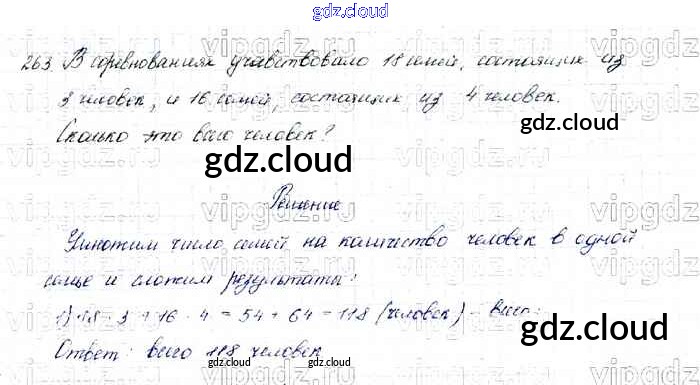 gdz.cloud
263. В соревнованиях участвовало 18 семей, состоящих из
3 человек, и 16 семей, состоящих из 4 человек.
Сколько это всего человек?
gdz.cloud
Решение
Умножим число семей на количество человек в одной
семье и сложим результаты:
gdz.cloud
1) 18 · 3 + 16 · 4 = 54 + 64 = 118 (человек) - всего.
gdz.cloud
Ответ: всего 118 человек
gdz.cloud